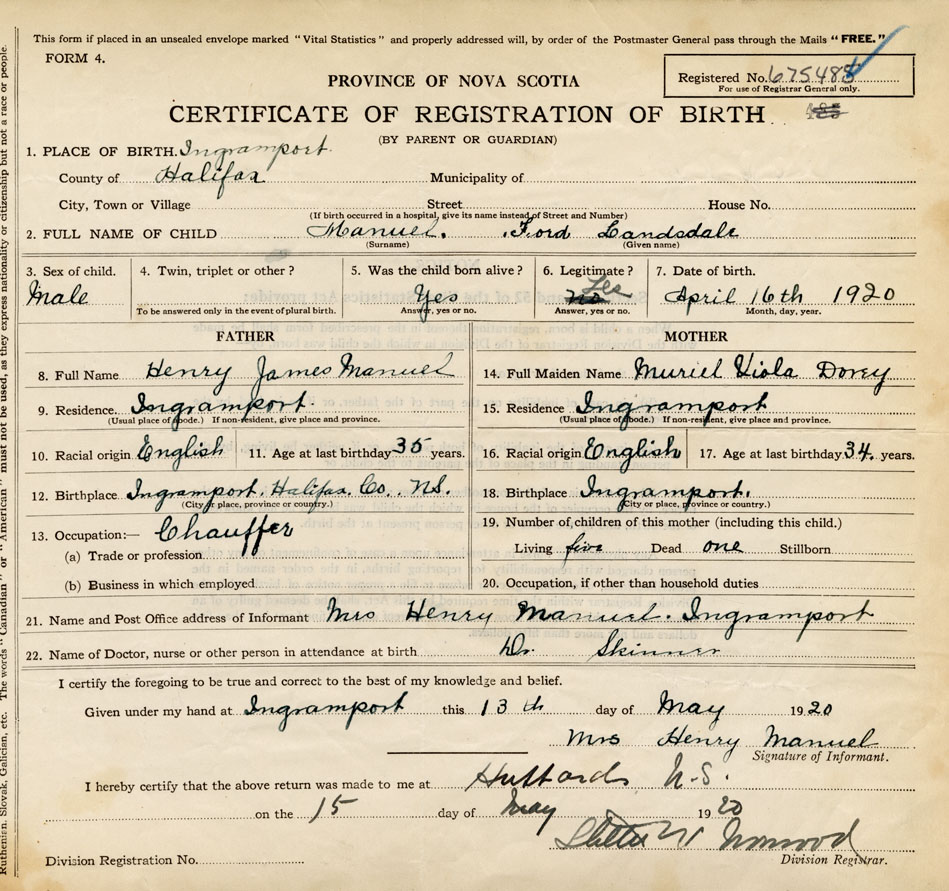 This form if placed in an unsealed envelope marked "Vital Statistics" and properly addressed will, by order of the Postmaster General pass through the Mails "FREE."
FORM 4.
PROVINCE OF NOVA SCOTIA
Registered No. 675485
For use of Registrar General only.
CERTIFICATE OF REGISTRATION OF BIRTH
(BY PARENT OR GUARDIAN)
1. PLACE OF BIRTH. Ingramport.
County of Halifax Municipality of
City, Town or Village Street House No.
(If birth occurred in a hospital, give its name instead of Street and Number)
2. FULL NAME OF CHILD Manuel. Ford Landsdale
(Surname) (Given name)
3. Sex of child. 4. Twin, triplet or other? 5. Was the child born alive? 6. Legitimate? 7. Date of birth.
Male Yes no Yes April 16th 1920
To be answered only in the event of plural birth. Answer, yes or no. Answer, yes or no. Month, day, year.
FATHER MOTHER
8. Full Name Henry James Manuel 14. Full Maiden Name Muriel Viola Dorey
9. Residence. Ingramport. 15. Residence Ingramport
(Usual place of abode.) If non-resident, give place and province. (Usual place of abode.) If non-resident, give place and province.
10. Racial origin English 11. Age at last birthday 35 years. 16. Racial origin English 17. Age at last birthday 34. years.
12. Birthplace Ingramport. Halifax Co. N.S. 18. Birthplace Ingramport.
(City or place, province or country.) (City or place, province or country.)
13. Occupation:— Chauffer 19. Number of children of this mother (including this child.)
(a) Trade or profession Living five Dead one Stillborn
(b) Business in which employed 20. Occupation, if other than household duties
21. Name and Post Office address of Informant Mrs Henry Manuel. Ingramport
22. Name of Doctor, nurse or other person in attendance at birth Dr. Skinner
I certify the foregoing to be true and correct to the best of my knowledge and belief.
Given under my hand at Ingramport this 13th day of May 1920
Mrs Henry Manuel
Signature of Informant.
I hereby certify that the above return was made to me at Hubbards N.S.
on the 15 day of May 1920
Norwood
Division Registration No. Division Registrar.
Ruthenian, Slovak, Galician, etc. The words "Canadian" or "American" must not be used, as they express nationality or citizenship but not a race or people.